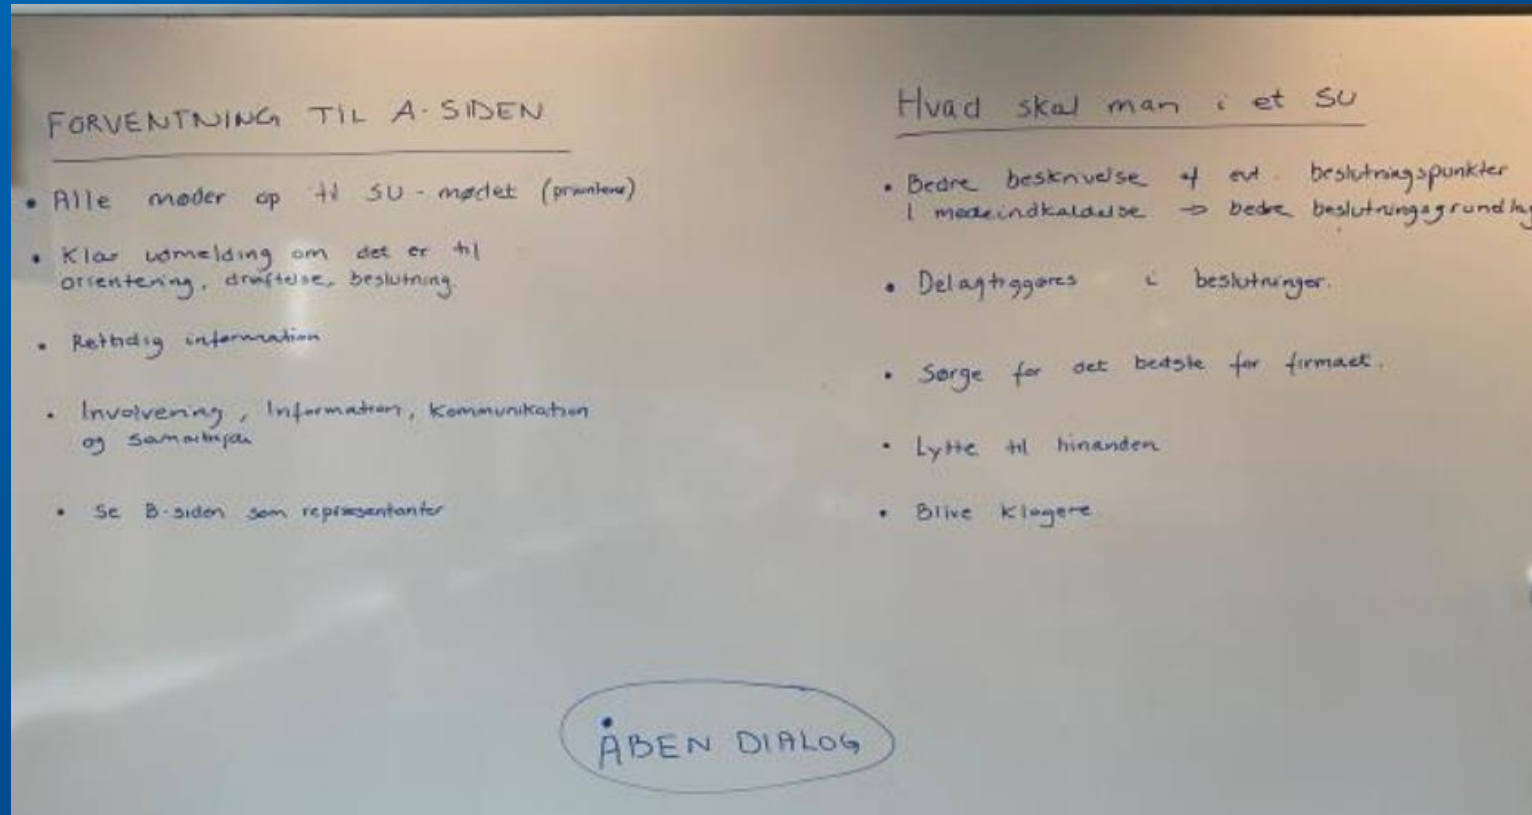 FORVENTNING TIL A-SIDEN
• Alle møder op til SU-mødet (prioritere)
• Klar udmelding om det er til
orientering, drøftelse, beslutning.
• Rettidig information
• Involvering, Information, Kommunikation
og samarbejde
• Se B-siden som repræsentanter
Hvad skal man i et SU
• Bedre beskrivelse af evt. beslutningspunkter
i mødeindkaldelse → bedre beslutningsgrundlag
• Delagtiggøres i beslutninger.
• Sørge for det bedste for firmaet.
• Lytte til hinanden
• Blive klogere
ÅBEN DIALOG